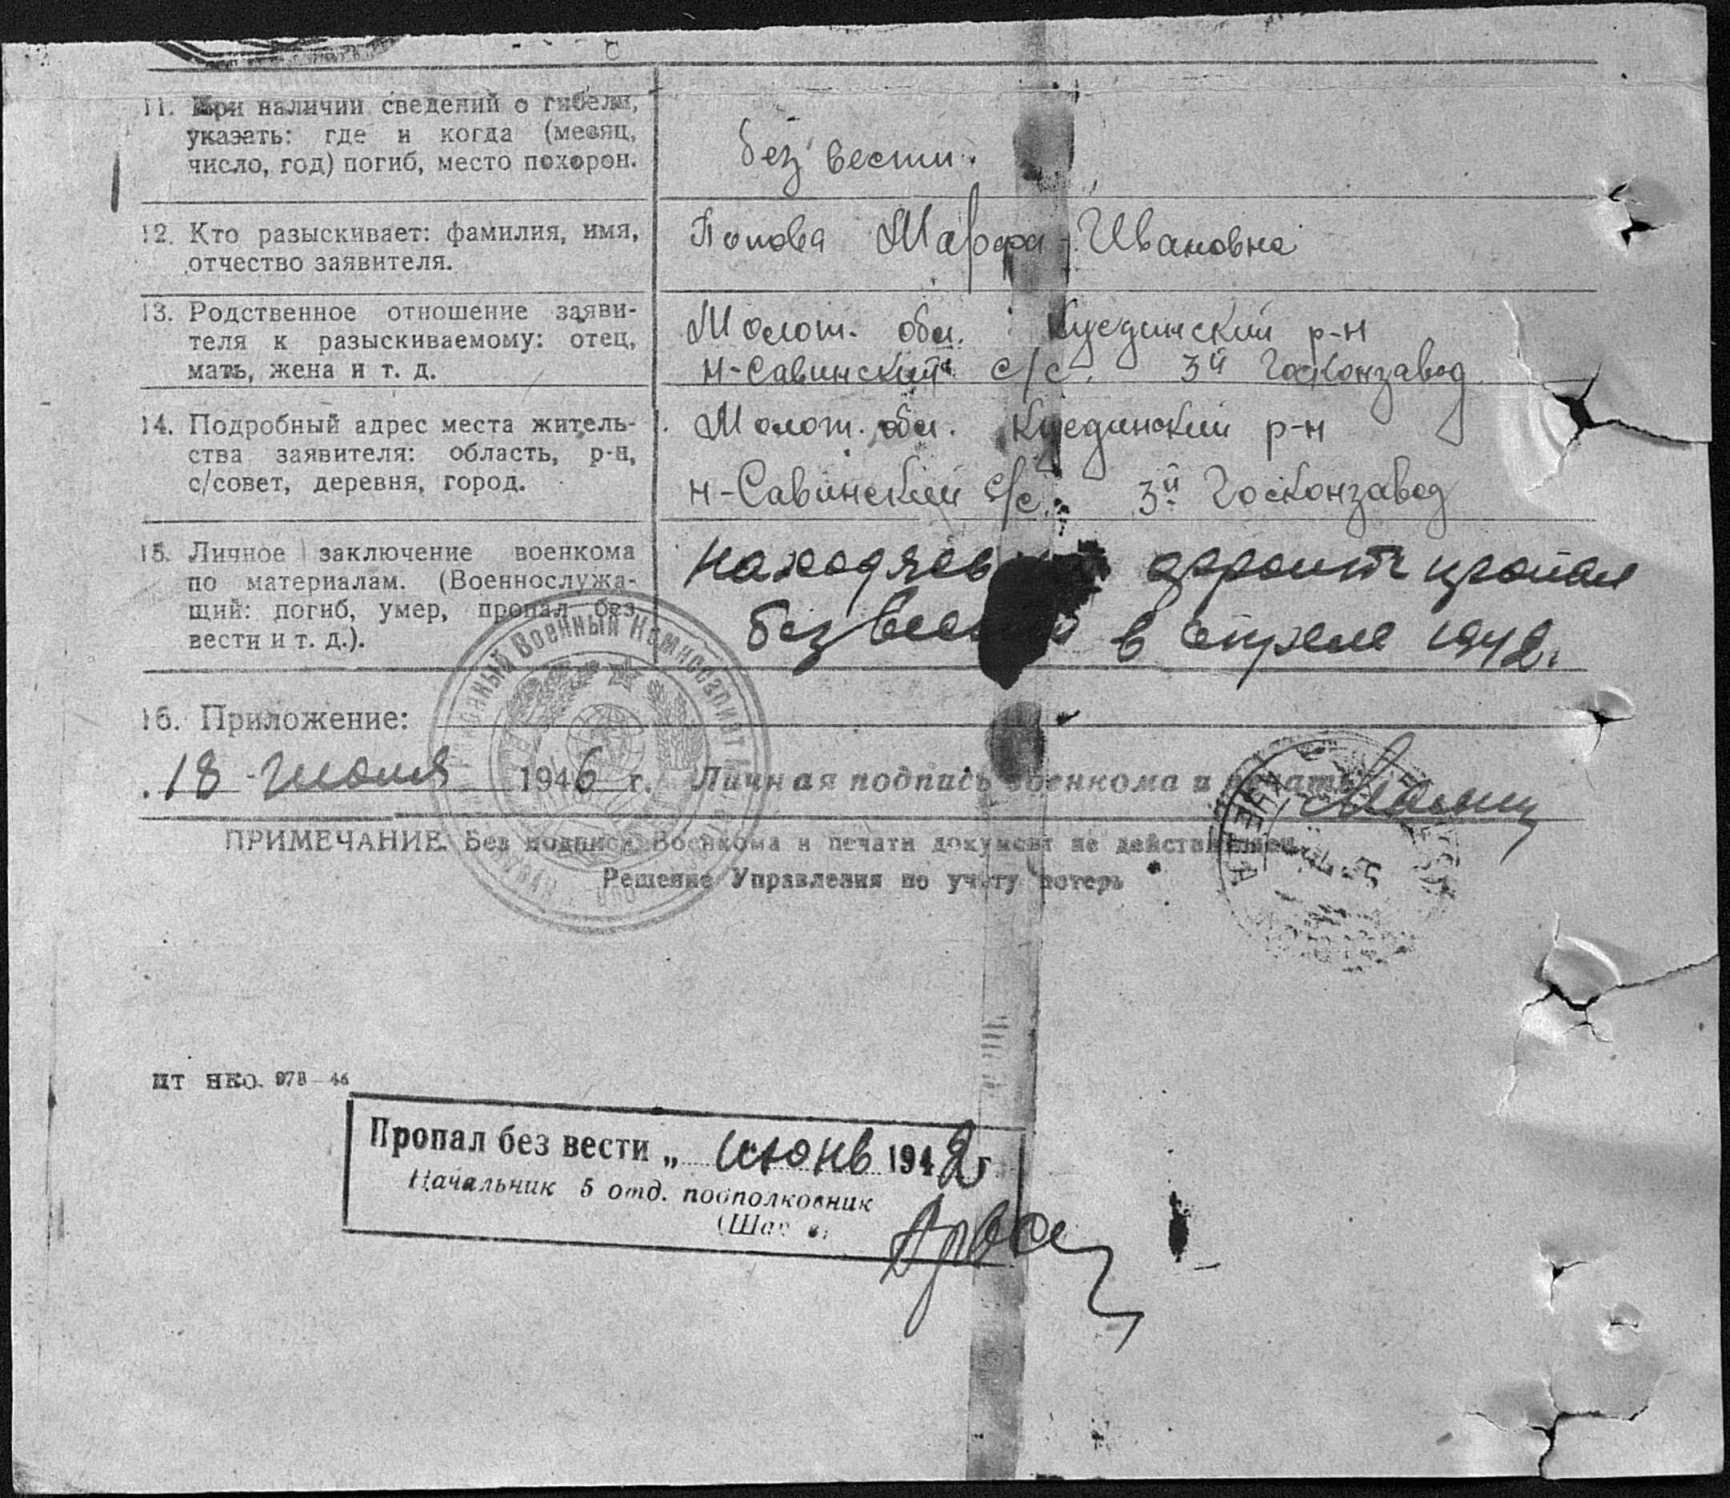 11. При наличии сведений о гибели,
указать: где и когда (месяц,
число, год) погиб, место похорон.
без вести.
12. Кто разыскивает: фамилия, имя,
отчество заявителя.
Попова Марфа Ивановна
13. Родственное отношение заяви-
теля к разыскиваемому: отец,
мать, жена и т. д.
Молот. обл. Куединский р-н
Н-Савинский с/с. 3й Госконзавод
14. Подробный адрес места житель-
ства заявителя: область, р-н,
с/совет, деревня, город.
Молот. обл. Куединский р-н
Н-Савинский с/с. 3й Госконзавод
15. Личное заключение военкома
по материалам. (Военнослужа-
щий: погиб, умер, пропал без
вести и т. д.).
находясь фронте пропал
без вести в апреле 1942.
Районный Военный Комиссариат
16. Приложение:
18 июля 1946 г. Личная подпись военкома и печать
ПРИМЕЧАНИЕ. Без подписи Военкома и печати документ не действителен.
Решение Управления по учету потерь
ШТ НКО 978—46
Пропал без вести „ июнь 1942 г
Начальник 5 отд. подполковник